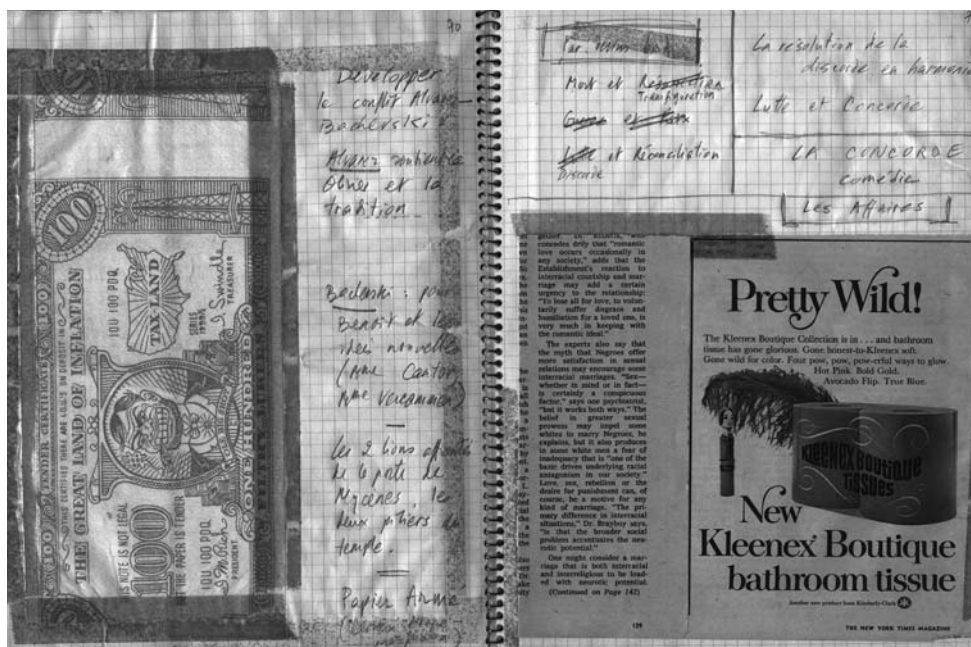 70
Développer
le conflit Alvarez
Bacherski
Alvarez soutient
Olivier et la
tradition.
Bacherski : pour
Benoît et les
idées nouvelles
(Mme Cantor
Mme
Les 2 lions
de la porte de
Mycènes, le
deux piliers du
temple.
Papier Armé
100
TAX LAND
100
IOU 100 PDQ
SERIES
TREASURER
100 TENDER CERTIFICATE
THIS CERTIFIES THERE ARE I.O.U'S ON DEPOSIT IN
THE GREAT LAND OF INFLATION
ONE HUNDRED
NOTE IS NOT LEGAL
THE PAPER IS TENDER
100
IOU 100 PDQ
PRESIDENT
Mort et Résurrection
Transfiguration
Guerre et Paix
Lutte et Réconciliation
Discorde
La résolution de la
discorde en harmonie
Lutte et Concorde
LA CONCORDE
comédie
Les Affaires
concedes drily that "romantic
love occurs occasionally in
any society," adds that the
Establishment's reaction to
interracial courtship and mar-
riage may add a certain
urgency to the relationship:
"To lose all for love, to volun-
tarily suffer disgrace and
humiliation for a loved one, is
very much in keeping with
the romantic ideal."
The experts also say that
the myth that Negroes offer
more satisfaction in sexual
relations may encourage some
interracial marriages. "Sex—
whether in mind or in fact—
is certainly a conspicuous
factor," says one psychiatrist,
"but it works both ways." The
belief in greater sexual
prowess may impel some
whites to marry Negroes, he
explains, but it also produces
in some white men a fear of
inadequacy that is "one of the
basic drives underlying racial
antagonism in our society."
Love, sex, rebellion or the
desire for punishment can, of
course, be a motive for any
kind of marriage. "The pri-
mary difference in interracial
situations," Dr. Brayboy says,
"is that the broader social
problem accentuates the neu-
rotic potential."
One might consider a mar-
riage that is both interracial
and interreligious to be load-
ed with neurotic potential.
(Continued on Page 142)
139
Pretty Wild!
The Kleenex Boutique Collection is in . . . and bathroom
tissue has gone glorious. Gone honest-to-Kleenex soft.
Gone wild for color. Four pow, pow, pow-erful ways to glow.
Hot Pink. Bold Gold.
Avocado Flip. True Blue.
KLEENEX BOUTIQUE
TISSUES
New
Kleenex Boutique
bathroom tissue
Another new product from Kimberly-Clark
THE NEW YORK TIMES MAGAZINE